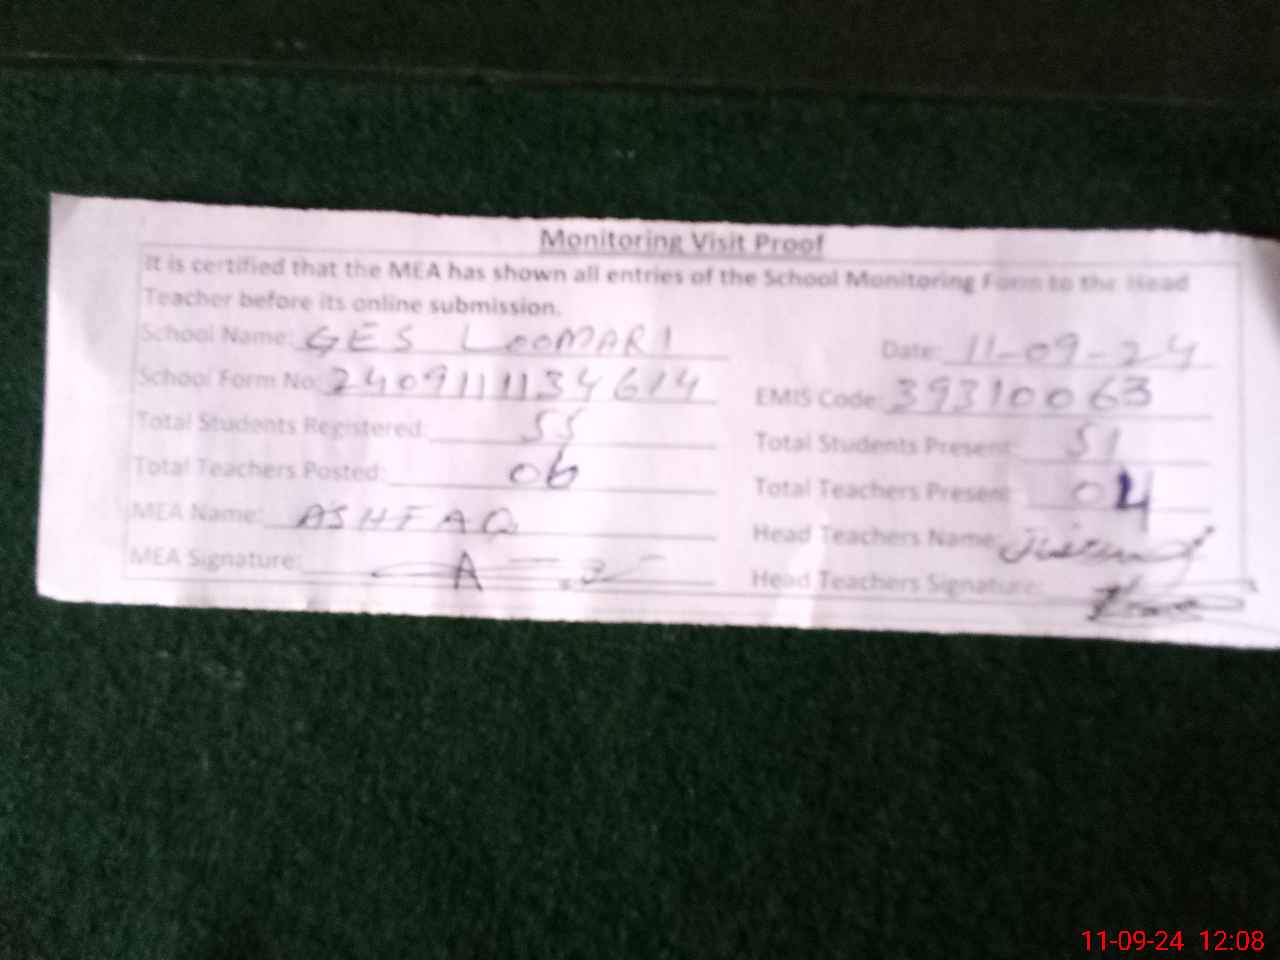 Monitoring Visit Proof
It is certified that the MEA has shown all entries of the School Monitoring Form to the Head
Teacher before its online submission.
School Name: GES LOOMARI Date: 11-09-24
School Form No: 2409111134614 EMIS Code: 39310063
Total Students Registered: 55 Total Students Present: 51
Total Teachers Posted: 06 Total Teachers Present: 04
MEA Name: ASHFAQ Head Teachers Name:
MEA Signature: Head Teachers Signature:
11-09-24 12:08